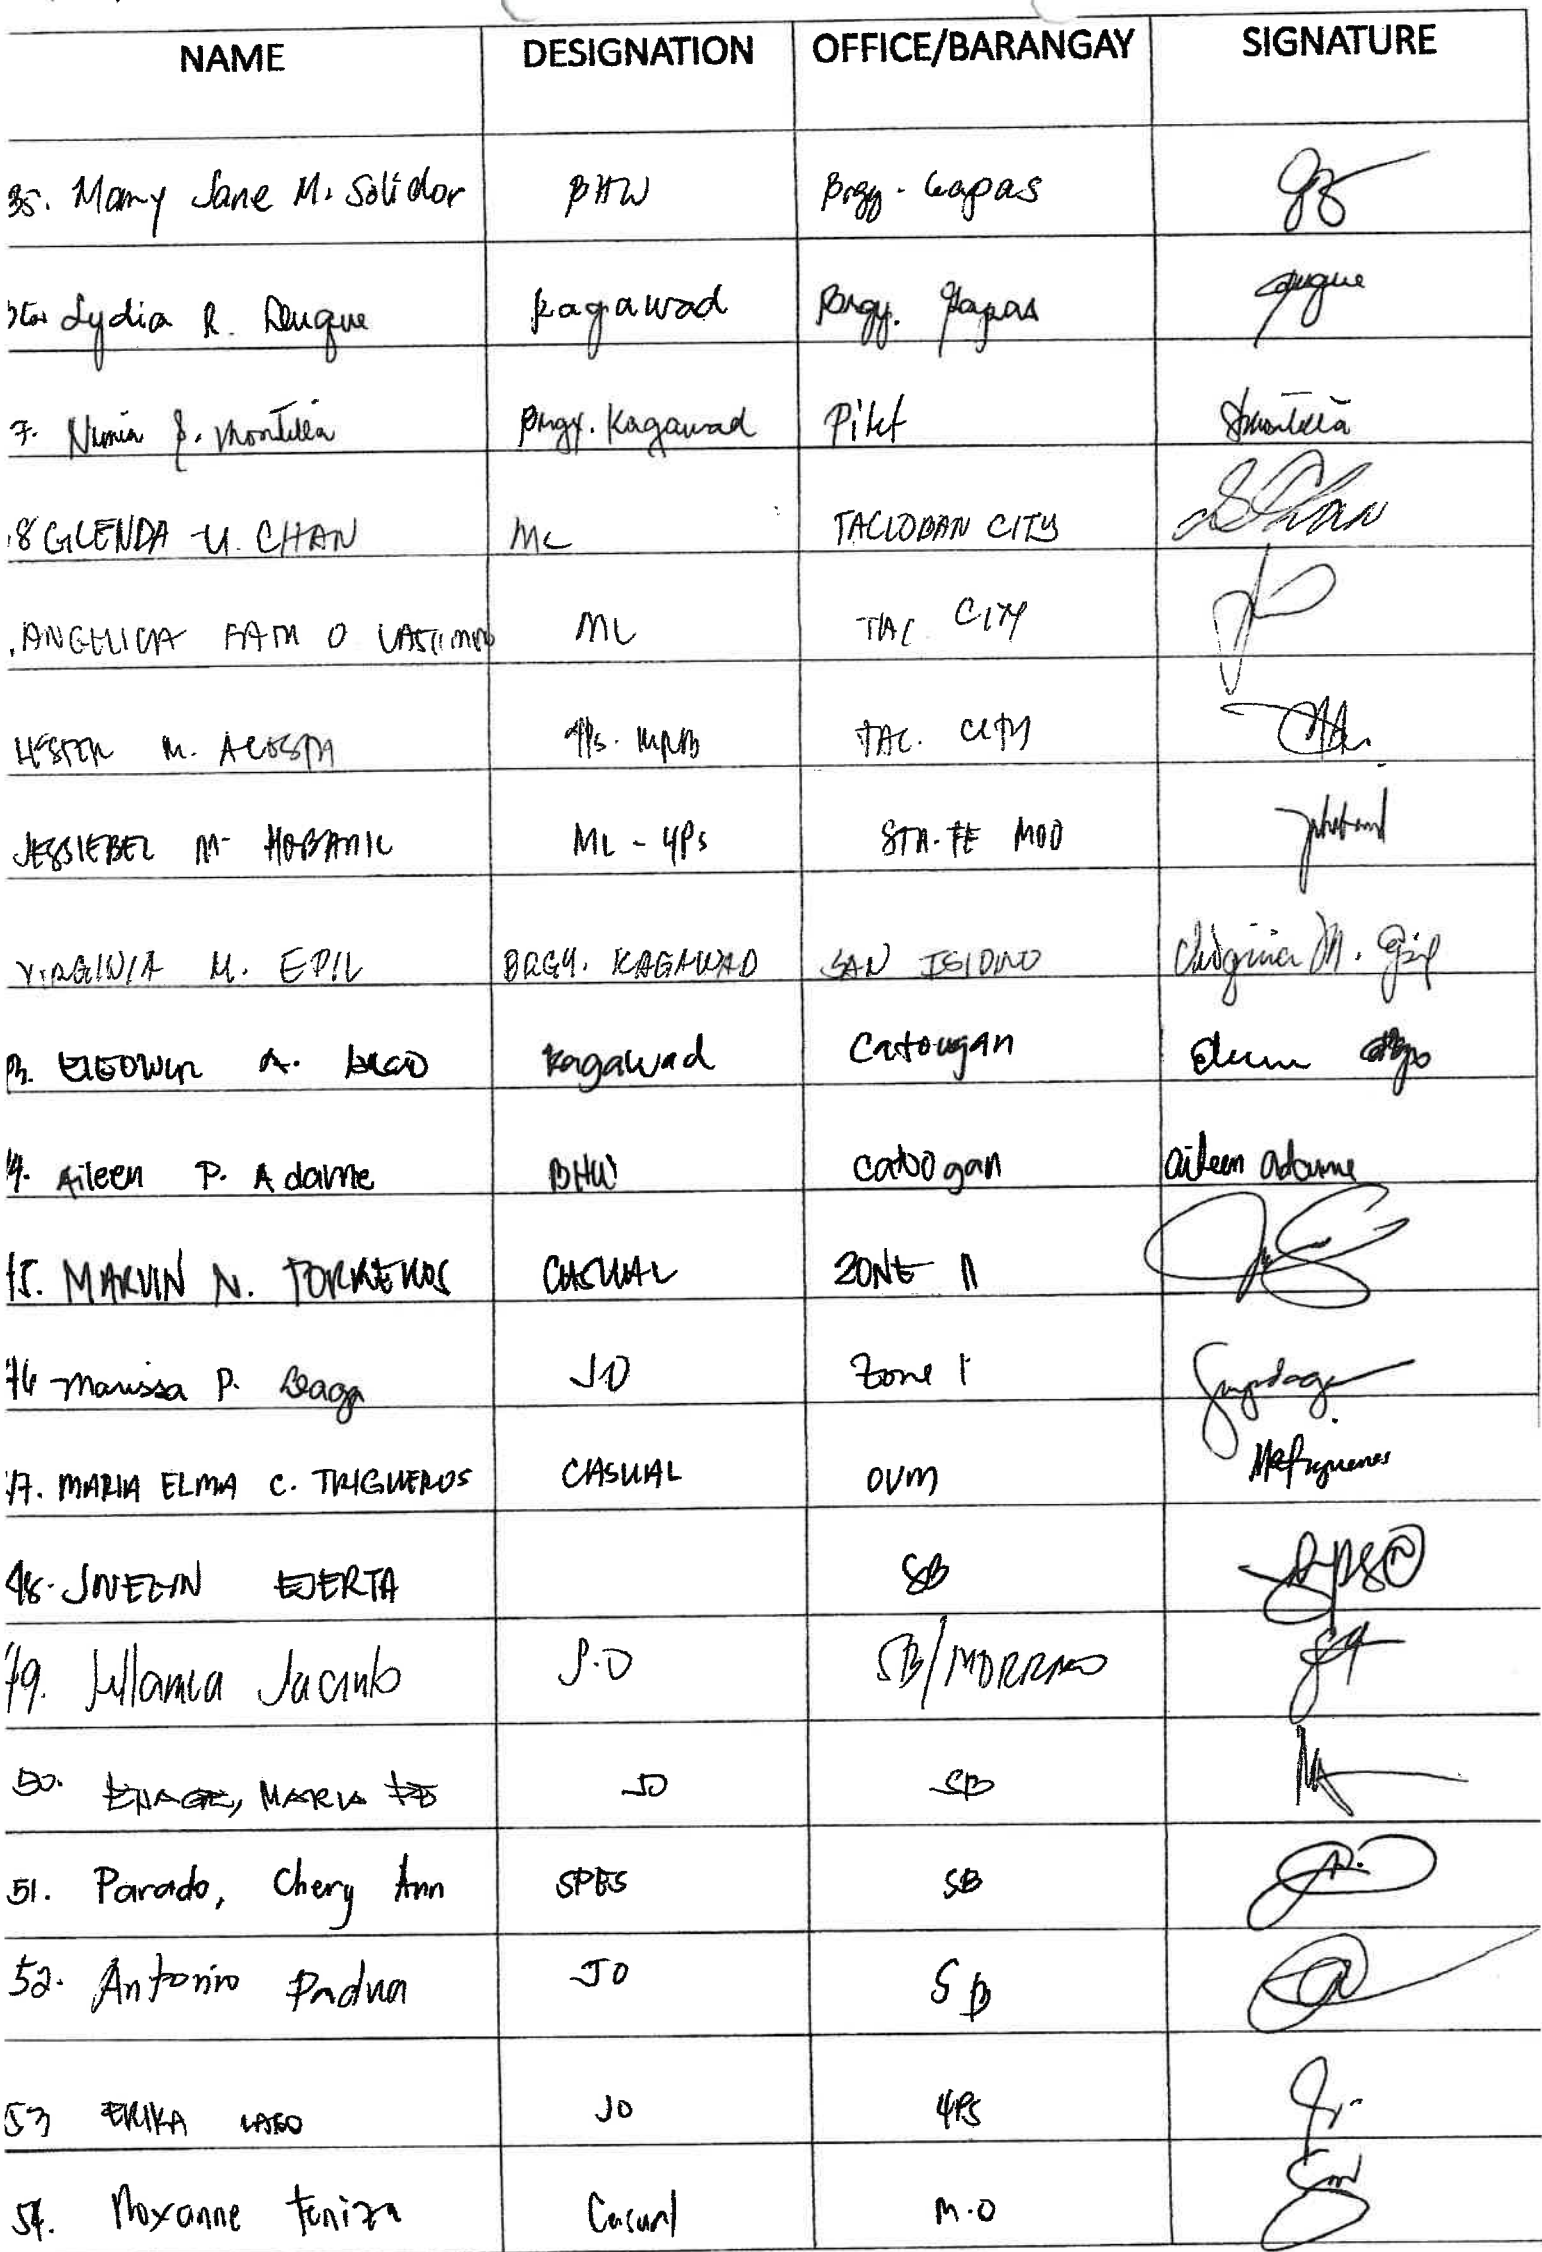 NAME DESIGNATION OFFICE/BARANGAY SIGNATURE
35. Mary Jane M. Solidor BHW Brgy. Gapas
Lydia R. Duque Kagawad Brgy. Gapas Duque
7. Montilla Brgy. Kagawad Montilla
8 GLENDA U. CHAN ML TACLOBAN CITY Chan
ANGELICA FATM O ML TAC. CITY
LESTER M. ACOSTA 4Ps. TAC. CITY
JESSIEBEL M. HOBANIL ML - 4Ps STA. FE MOO
VIRGINIA M. EPIL BRGY. KAGAWAD SAN ISIDRO Virginia M. Epil
A. Kagawad Catoogan
4. Aileen P. Adame BHW Catoogan aileen adame
45. MARVIN N. TORREROS CASUAL ZONE II
46 Marissa P. Daaga JO Zone 1
47. MARIA ELMA C. TRIGUEROS CASUAL OVM
48. JOVELYN EJERTA SB
49. Jacinto J.O SB/
50. ENAGE, MARIA FE JO SB
51. Parado, Chery Ann SPES SB
52. Antonio Padua JO SB
53 ERIKA JO 4PS
54. Roxanne Teniza Casual M.O